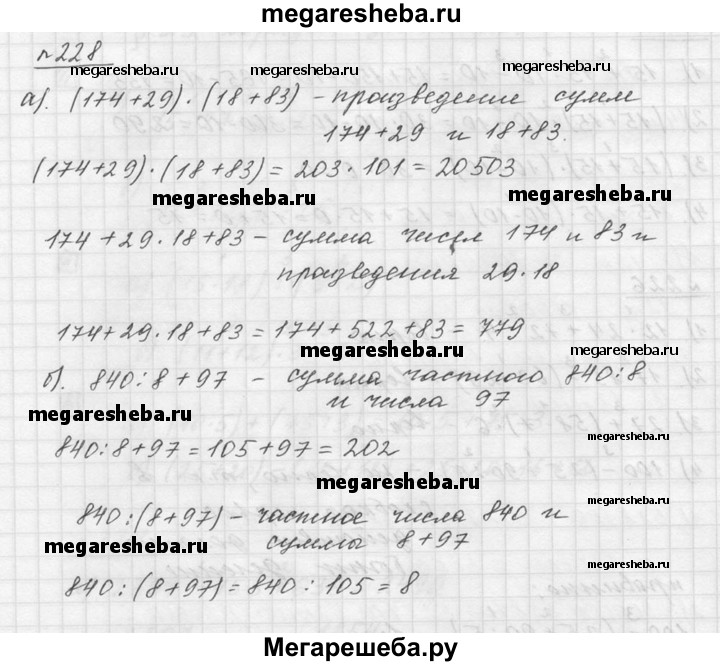 megaresheba.ru
n 228
megaresheba.ru megaresheba.ru megaresheba.ru
а). (174+29)·(18+83) – произведение сумм
174+29 и 18+83.
(174+29)·(18+83) = 203·101 = 20503
megaresheba.ru megaresheba.ru
174+29·18+83 – сумма чисел 174 и 83 и
произведения 29·18
174+29·18+83 = 174+522+83 = 779
megaresheba.ru megaresheba.ru
б). 840:8+97 – сумма частного 840:8
и числа 97
megaresheba.ru
840:8+97 = 105+97 = 202
megaresheba.ru megaresheba.ru
840:(8+97) – частное числа 840 и
суммы 8+97
megaresheba.ru megaresheba.ru
840:(8+97) = 840:105 = 8
Мегарешеба.ру